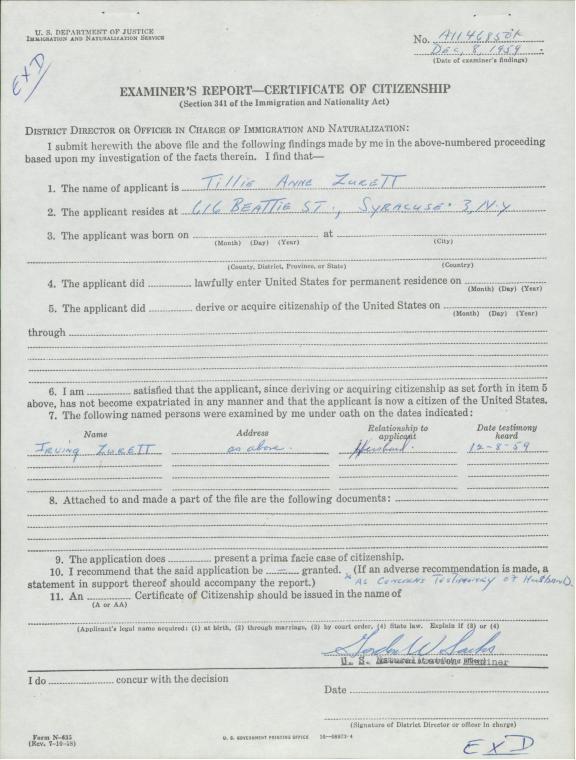 U. S. DEPARTMENT OF JUSTICE
IMMIGRATION AND NATURALIZATION SERVICE
No. A11468506
Dec, 8, 1959
(Date of examiner's findings)
EXD
EXAMINER'S REPORT—CERTIFICATE OF CITIZENSHIP
(Section 341 of the Immigration and Nationality Act)
DISTRICT DIRECTOR OR OFFICER IN CHARGE OF IMMIGRATION AND NATURALIZATION:
I submit herewith the above file and the following findings made by me in the above-numbered proceeding
based upon my investigation of the facts therein. I find that—
1. The name of applicant is TILLIE ANNE ZURETT
2. The applicant resides at 616 BEATTIE ST., SYRACUSE 3, N.Y
3. The applicant was born on at
(Month) (Day) (Year) (City)
(County, District, Province, or State) (Country)
4. The applicant did lawfully enter United States for permanent residence on
(Month) (Day) (Year)
5. The applicant did derive or acquire citizenship of the United States on
(Month) (Day) (Year)
through
6. I am satisfied that the applicant, since deriving or acquiring citizenship as set forth in item 5
above, has not become expatriated in any manner and that the applicant is now a citizen of the United States.
7. The following named persons were examined by me under oath on the dates indicated:
Name Address Relationship to applicant Date testimony heard
IRVING ZURETT as above. Husband. 12-8-59
8. Attached to and made a part of the file are the following documents:
9. The application does present a prima facie case of citizenship.
10. I recommend that the said application be granted. (If an adverse recommendation is made, a
statement in support thereof should accompany the report.) * AS CONCERNS TESTIMONY OF HUSBAND.
11. An Certificate of Citizenship should be issued in the name of
(A or AA)
(Applicant's legal name acquired: (1) at birth, (2) through marriage, (3) by court order, (4) State law. Explain if (3) or (4)
Gordon W. Sacks
U. S. Naturalization Examiner
I do concur with the decision
Date
(Signature of District Director or officer in charge)
Form N-635
(Rev. 7-10-58)
U. S. GOVERNMENT PRINTING OFFICE 16—68973-4
EXD